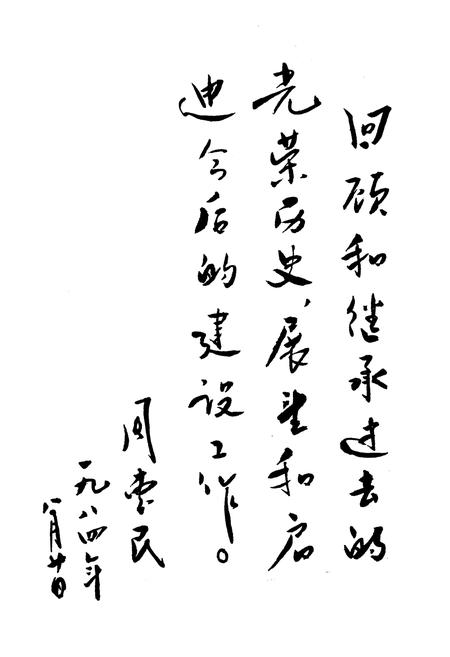 回顾和继承过去的
光荣历史、展望和启
迪今后的建设工作。
周惠民
一九八四年
八月廿日